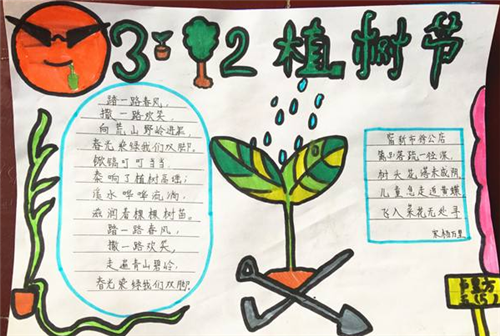 3 12 植树节
踏一路春风，
撒一路欢笑，
向荒山野岭进发，
春光染绿我们双脚。
锹镐叮叮当当，
奏响了植树高潮；
溪水哗哗流淌，
滋润着棵棵树苗。
踏一路春风，
撒一路欢笑，
走遍青山碧岭，
春光染绿我们双脚。
宿新市徐公店
落疏一径深，
树头花落未成阴
儿童急走追黄蝶
飞入菜花无处寻
宋 杨万里